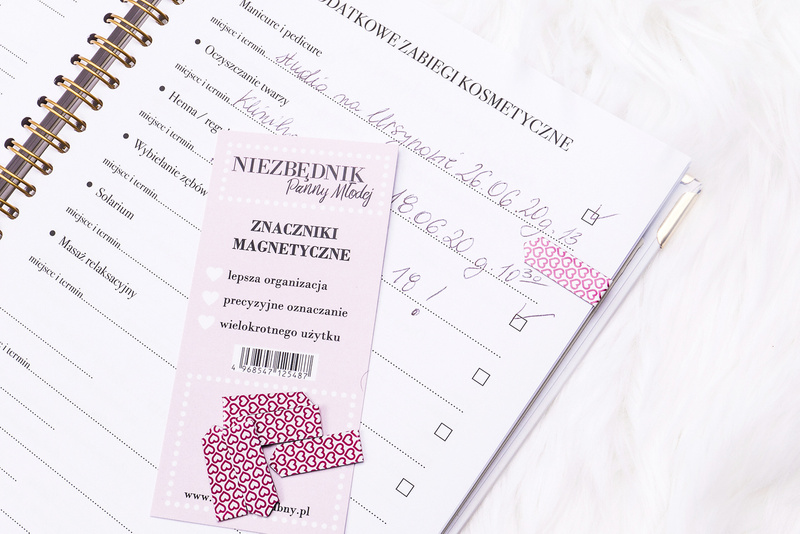 DODATKOWE ZABIEGI KOSMETYCZNE
Manicure i pedicure
miejsce i termin
studio na Ursynowie 26.06.20 g. 13
Oczyszczanie twarzy
miejsce i termin
18.06.20 g. 10 30
Henna / reg
miejsce i termin
19!
Wybielanie zębów
miejsce i termin
Solarium
miejsce i termin
Masaż relaksacyjny
miejsce i termin
miejsce i termin
NIEZBĘDNIK
Panny Młodej
ZNACZNIKI
MAGNETYCZNE
lepsza organizacja
precyzyjne oznaczanie
wielokrotnego użytku
4 968547 125487
www.
bny.pl